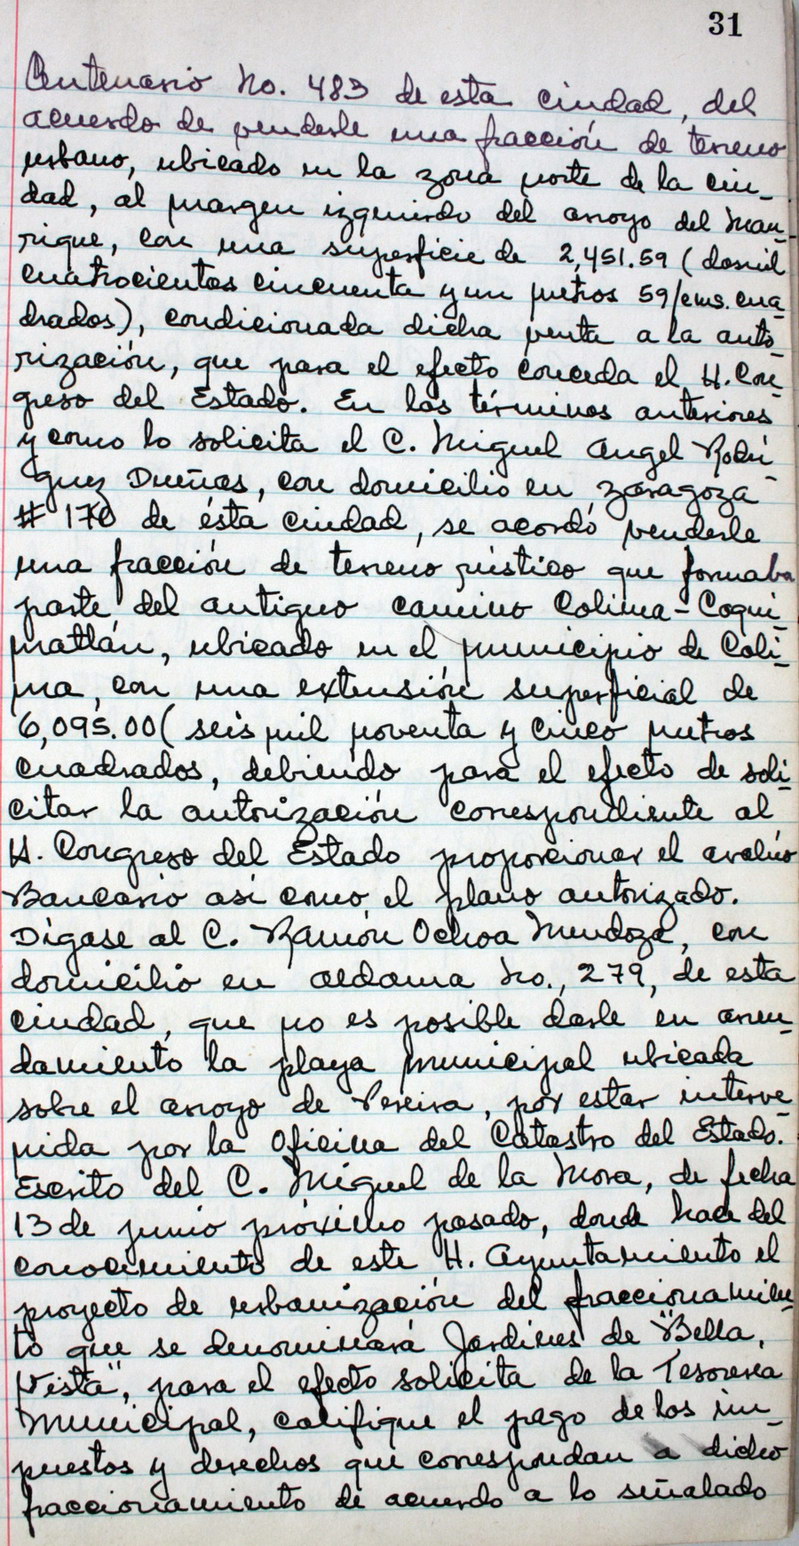 31
Centenario No. 483 de esta ciudad, del
acuerdo de venderle una fracción de terreno
urbano, ubicado en la zona norte de la ciu-
dad, al margen izquierdo del arroyo del Man-
rique, con una superficie de 2,451.59 (dosmil
cuatrocientos cincuenta y un metros 59/cms. cua-
drados), condicionada dicha venta a la auto-
rización, que para el efecto conceda el H. Con-
greso del Estado. En los términos anteriores
y como lo solicita el C. Miguel Angel Rodrí-
guez Dueñas, con domicilio en Zaragoza
# 170 de ésta ciudad, se acordó venderle
una fracción de terreno rústico que formaba
parte del antiguo camino Colima-Coqui-
matlán, ubicado en el municipio de Coli-
ma, con una extensión superficial de
6,095.00 (seis mil noventa y cinco metros
cuadrados, debiendo para el efecto de soli-
citar la autorización correspondiente al
H. Congreso del Estado proporcionar el avalúo
Bancario así como el plano autorizado.
Dígase al C. Ramón Ochoa Mendoza, con
domicilio en Aldama No., 279, de esta
ciudad, que no es posible darle en arren-
damiento la playa municipal ubicada
sobre el arroyo de Pereira, por estar interve-
nida por la Oficina del Catastro del Estado.
Escrito del C. Miguel de la Mora, de fecha
13 de junio próximo pasado, donde hace del
conocimiento de este H. Ayuntamiento el
proyecto de urbanización del fraccionamien-
to que se denominará Jardines de "Bella,
Vista", para el efecto solicita de la Tesorería
Municipal, califique el pago de los im-
puestos y derechos que correspondan a dicho
fraccionamiento de acuerdo a lo señalado